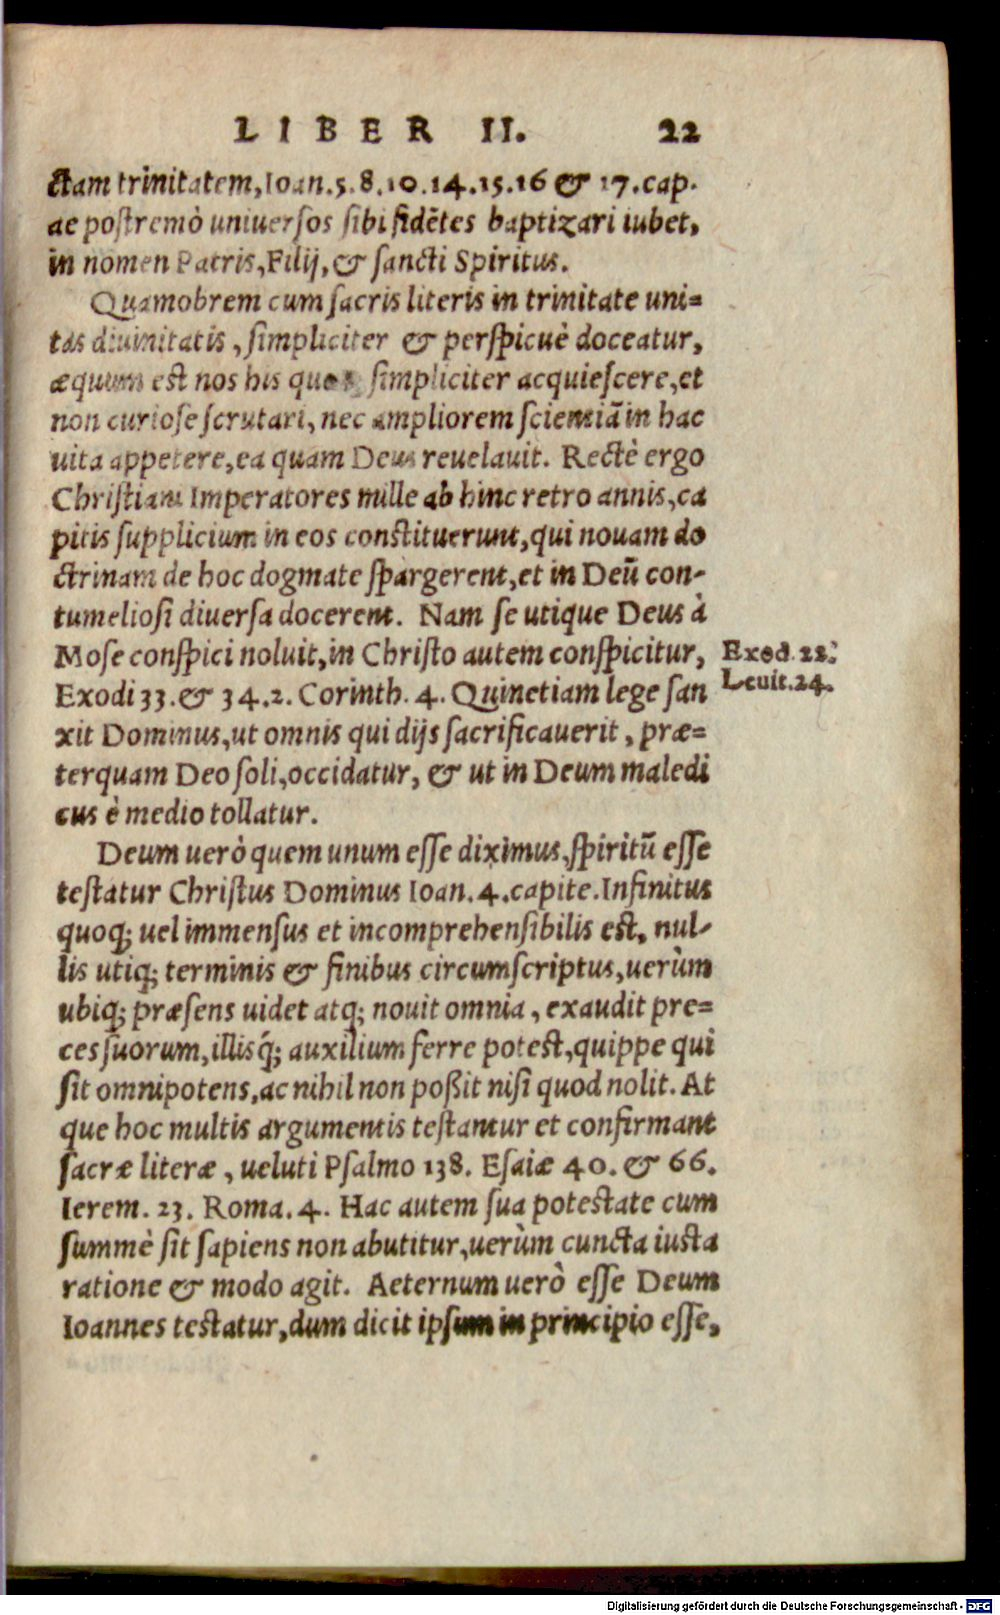 LIBER II. 22
ctam trinitatem, Ioan.5.8.10.14.15.16 & 17.cap.
ae postremò uniuersos sibi fidẽtes baptizari iubet,
in nomen Patris, Filij, & sancti Spiritus.
Quamobrem cum sacris literis in trinitate uni=
tas diuinitatis, simpliciter & perspicuè doceatur,
æquum est nos his simpliciter acquiescere, et
non curiose scrutari, nec ampliorem scientiã in hac
uita appetere, ea quam Deus reuelauit. Rectè ergo
Christiani Imperatores mille ab hinc retro annis, ca
pitis supplicium in eos constituerunt, qui nouam do
ctrinam de hoc dogmate spargerent, et in Deũ con-
tumeliosi diuersa docerent. Nam se utique Deus à
Mose conspici noluit, in Christo autem conspicitur,
Exodi 33. & 34. 2. Corinth. 4. Quinetiam lege san
xit Dominus, ut omnis qui dijs sacrificauerit, præ=
terquam Deo soli, occidatur, & ut in Deum maledi
cus è medio tollatur.
Exod. 22.
Leuit. 24.
Deum uerò quem unum esse diximus, spiritũ esse
testatur Christus Dominus Ioan. 4. capite. Infinitus
quoq; uel immensus et incomprehensibilis est, nul-
lis utiq; terminis & finibus circumscriptus, uerùm
ubiq; præsens uidet atq; nouit omnia, exaudit pre=
ces suorum, illisq́; auxilium ferre potest, quippe qui
sit omnipotens, ac nihil non poßit nisi quod nolit. At
que hoc multis argumentis testantur et confirmant
sacræ literæ, ueluti Psalmo 138. Esaiæ 40. & 66.
Ierem. 23. Roma. 4. Hac autem sua potestate cum
summè sit sapiens non abutitur, uerùm cuncta iusta
ratione & modo agit. Aeternum uerò esse Deum
Ioannes testatur, dum dicit ipsum in principio esse,
Digitalisierung gefördert durch die Deutsche Forschungsgemeinschaft - DFG